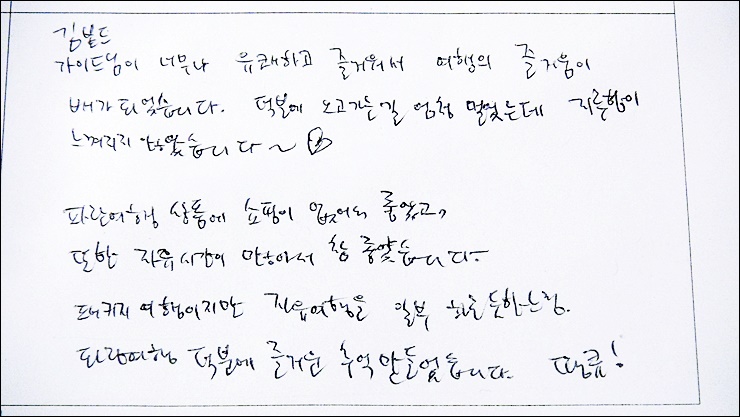 김볕트
가이드님이 너무나 유쾌하고 즐거워서 여행의 즐거움이
배가 되었습니다. 덕분에 오고가는길 엄청 멀었는데 지루함이
느껴지지 않았습니다~
파란여행 상품에 쇼핑이 없어서 좋았고,
또한 자유시간이 많아서 참 좋았습니다.
패키지 여행이지만 자유여행을 일부 하는듯한느낌.
파란여행 덕분에 즐거운 추억만들었습니다. 땡큐!